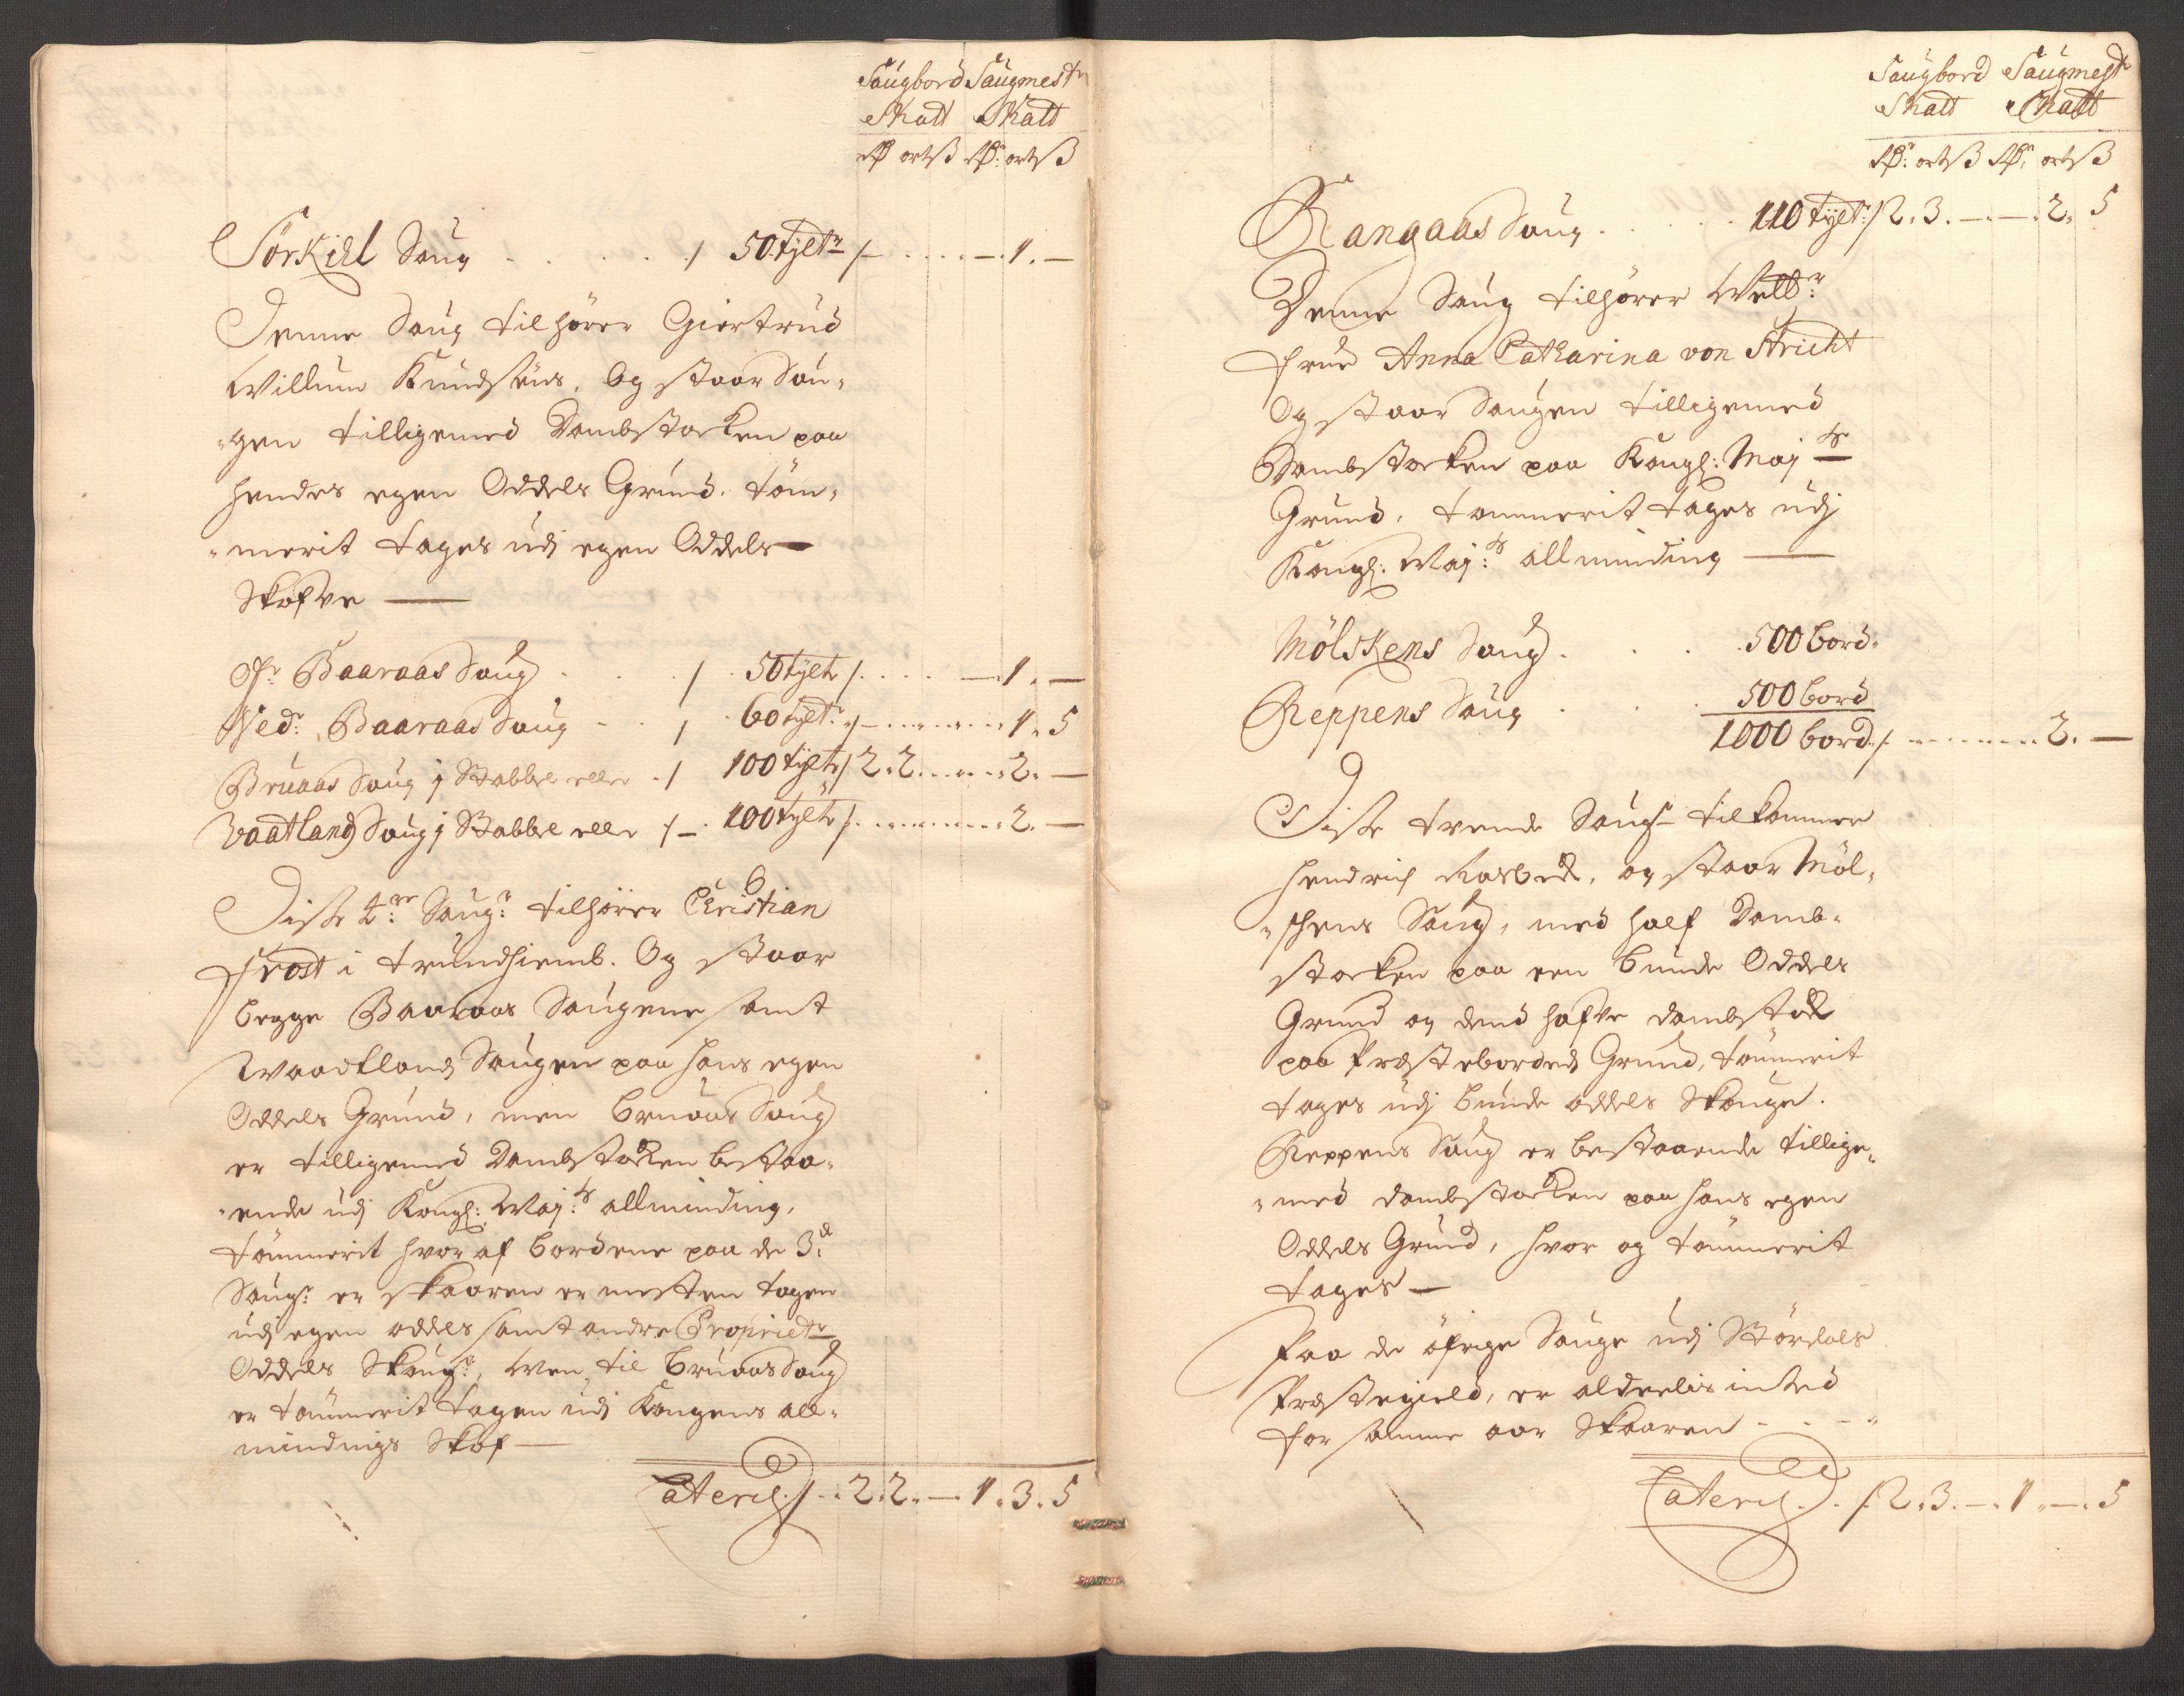 Saugbord Saugmestr
Skatt Skatt
Rdr ort ß Rdr: ort ß
Sørkihl Saug . . . . . / 50 tylt:r /- . . . . - . 1 . -
Denne Saug tilhører Giertrud
Willum Knudsøns, Og staar Sau„
„gen tilligemed Dambstocken paa
hendes egen Oddels Grund. tøm„
„merit tages udj egen Oddels
Skofve —
Øf:r Baaraas Saug . . . / 50 tylt:r / . . . . - 1 . -
Ned:r Baaraas Saug - . . / 60 tylt:r /- . . . . 1 . 5
Bruaas Saug j Stabbel eller . / 100 tylt:r / 2 . 2 . . . . 2 . -
Vaatland Saug j Stabbel eller / - . 100 tylt:r / . . . . 2 . -
Disse 4:re Saug:r tilhører Christian
Frost i trundhiemb. Og staar
begge Baaraas Saugene samt
Waadtland Saugen paa hans egen
Oddels Grund, men bruaas Saug
er tilligemed Dambstocken bestaa„
„ende udj Kongl: May:ts allminding,
tømmerit hvor af bordene paa de 3:de
Saug:r er skaaren er mesten tagen
udj egen oddels samt andre Propriet:r
Oddels Skoug:r, Men til bruaas Saug
er tømmerit tagen udj Kongens all„
mindings Skof —
Lateris / . . 2 . 2 . - 1 . 3 . 5
Saugbord Saugmestr
Skatt Skatt
Rdr: ort ß Rdr: ort ß
Rangaas Saug . . . . . 110 tylt:r / 2 . 3 . - . - . 2 . 5
Denne Saug tilhører Welb:r
frue Anna Catharina von Stricht
Og staar Saugen tilligemed
Dambstocken paa Kongl: May:ts
Grund, tømmerit tages udj
Kongl: May:ts allminding —
Mølskens Saug . . . . 500 bord.
Reppens Saug . . . . 500 bord
1000 bord / . . . . . 2 . -
Disse tvende Saug:r tilkommer
Hendrich , og staar Møl„
„schens Saug, med half Damb„
stocken paa een bunde Oddels
Grund og dend hafve dambstock
paa Præstebordeds Grund, tømmerit
tages udj bunde oddels Skouge.
Reppens Saug er bestaaende tillige„
„med dambstocken paa hans egen
Oddels Grund, hvor og tømmerit
tages —
Paa de øfrige Sauge udj Størdals
Præstegield, er alderlis inted
for samme aar Skaaren - . - „
Lateris . . / 2 . 3 . - . 1 . - . 5